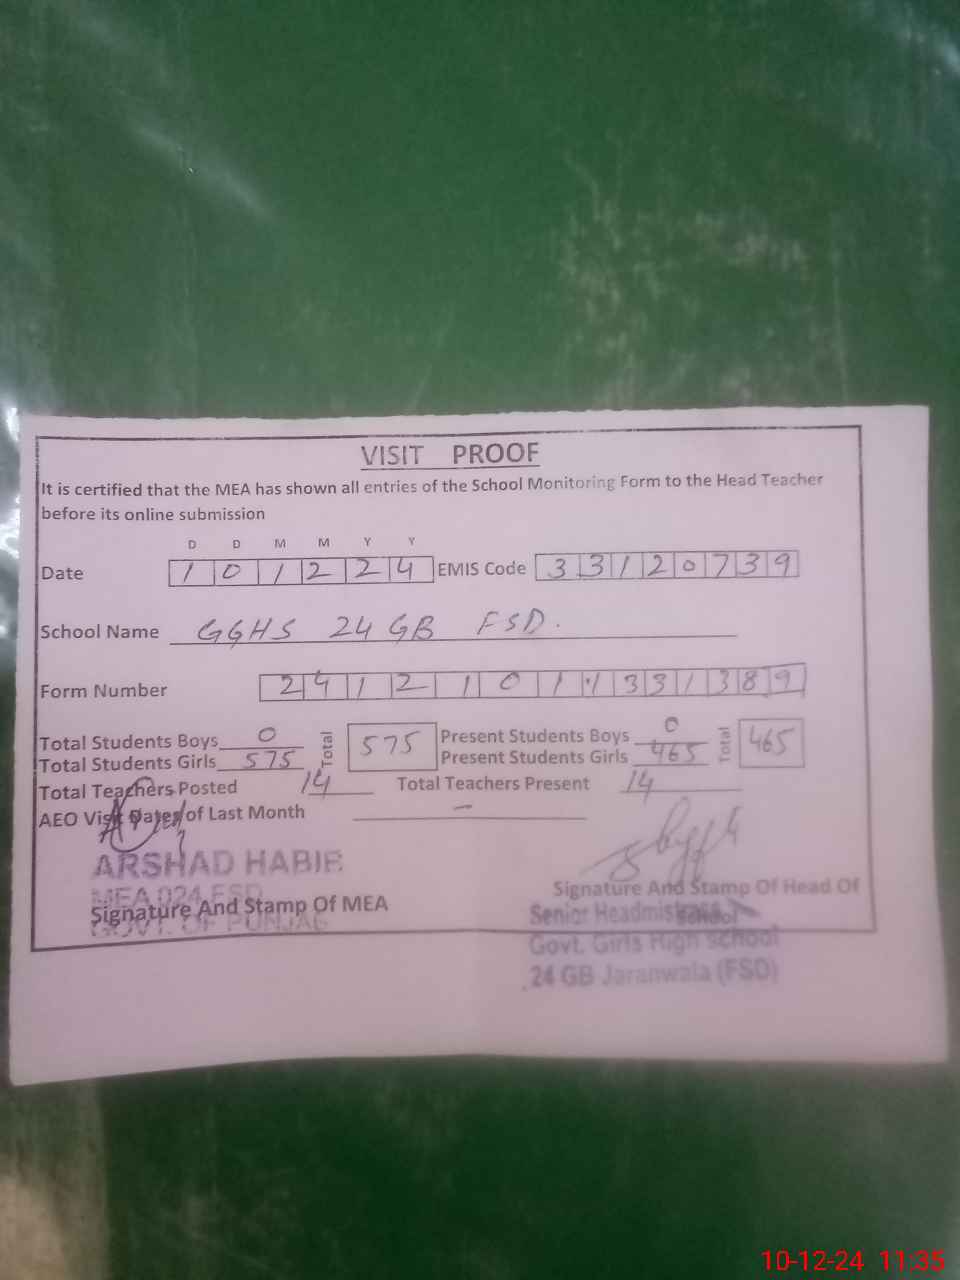 VISIT PROOF
It is certified that the MEA has shown all entries of the School Monitoring Form to the Head Teacher
before its online submission
D D M M Y Y
Date 1 0 1 2 2 4 EMIS Code 3 3 1 2 0 7 3 9
School Name GGHS 24 GB FSD.
Form Number 2 4 1 2 1 0 1 1 3 3 1 3 8 9
Total Students Boys 0 Total 575 Present Students Boys 0 Total 465
Total Students Girls 575 Present Students Girls 465
Total Teachers Posted 14 Total Teachers Present 14
AEO Visit Dates of Last Month -
ARSHAD HABIB
MEA 024 FSD
Signature And Stamp Of MEA
GOVT. OF PUNJAB
Signature And Stamp Of Head Of
School
Senior Headmistress
Govt. Girls High school
24 GB Jaranwala (FSD)
10-12-24 11:35